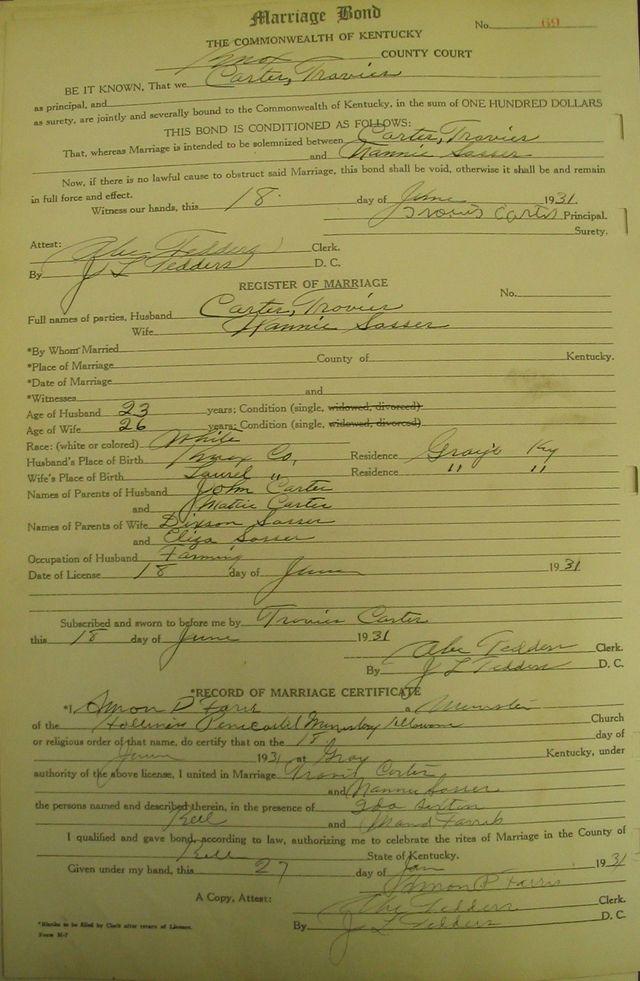 Marriage Bond
No. 69
THE COMMONWEALTH OF KENTUCKY
Knox COUNTY COURT
BE IT KNOWN, That we Carter, Trovies
as principal, and
as surety, are jointly and severally bound to the Commonwealth of Kentucky, in the sum of ONE HUNDRED DOLLARS
THIS BOND IS CONDITIONED AS FOLLOWS:
That, whereas Marriage is intended to be solemnized between Carter, Trovies
and Nannie Sasser
Now, if there is no lawful cause to obstruct said Marriage, this bond shall be void, otherwise it shall be and remain
in full force and effect.
Witness our hands, this 18 day of June 1931.
Trovies Carter Principal.
Surety.
Attest: Abe Tedders Clerk.
By J L Tedders D. C.
REGISTER OF MARRIAGE
No.
Full names of parties, Husband Carter, Trovies
Wife Nannie Sasser
*By Whom Married
*Place of Marriage County of Kentucky.
*Date of Marriage
*Witnesses and
Age of Husband 23 years; Condition (single, widowed, divorced)
Age of Wife 26 years; Condition (single, widowed, divorced)
Race: (white or colored) White
Husband's Place of Birth Knox Co, Residence Grays Ky
Wife's Place of Birth Laurel " Residence " "
Names of Parents of Husband John Carter
and Mattie Carter
Names of Parents of Wife Dixson Sasser
and Eliza Sasser
Occupation of Husband Farming
Date of License 18 day of June 1931
Subscribed and sworn to before me by Trovies Carter
this 18 day of June 1931
Abe Tedders Clerk.
By J L Tedders D. C.
*RECORD OF MARRIAGE CERTIFICATE
*I, Simon P Faris a Minister
of the Church
or religious order of that name, do certify that on the 18 day of
June 1931 at Gray Kentucky, under
authority of the above license, I united in Marriage Carter
and Nannie Sasser
the persons named and described therein, in the presence of Ida
Bell and Farris
I qualified and gave bond, according to law, authorizing me to celebrate the rites of Marriage in the County of
Bell State of Kentucky.
Given under my hand, this 27 day of Jan 1931
Simon P Farris
A Copy, Attest: Abe Tedders Clerk.
By J L Tedders D. C.
*Blanks to be filled by Clerk after return of License.
Form M-7